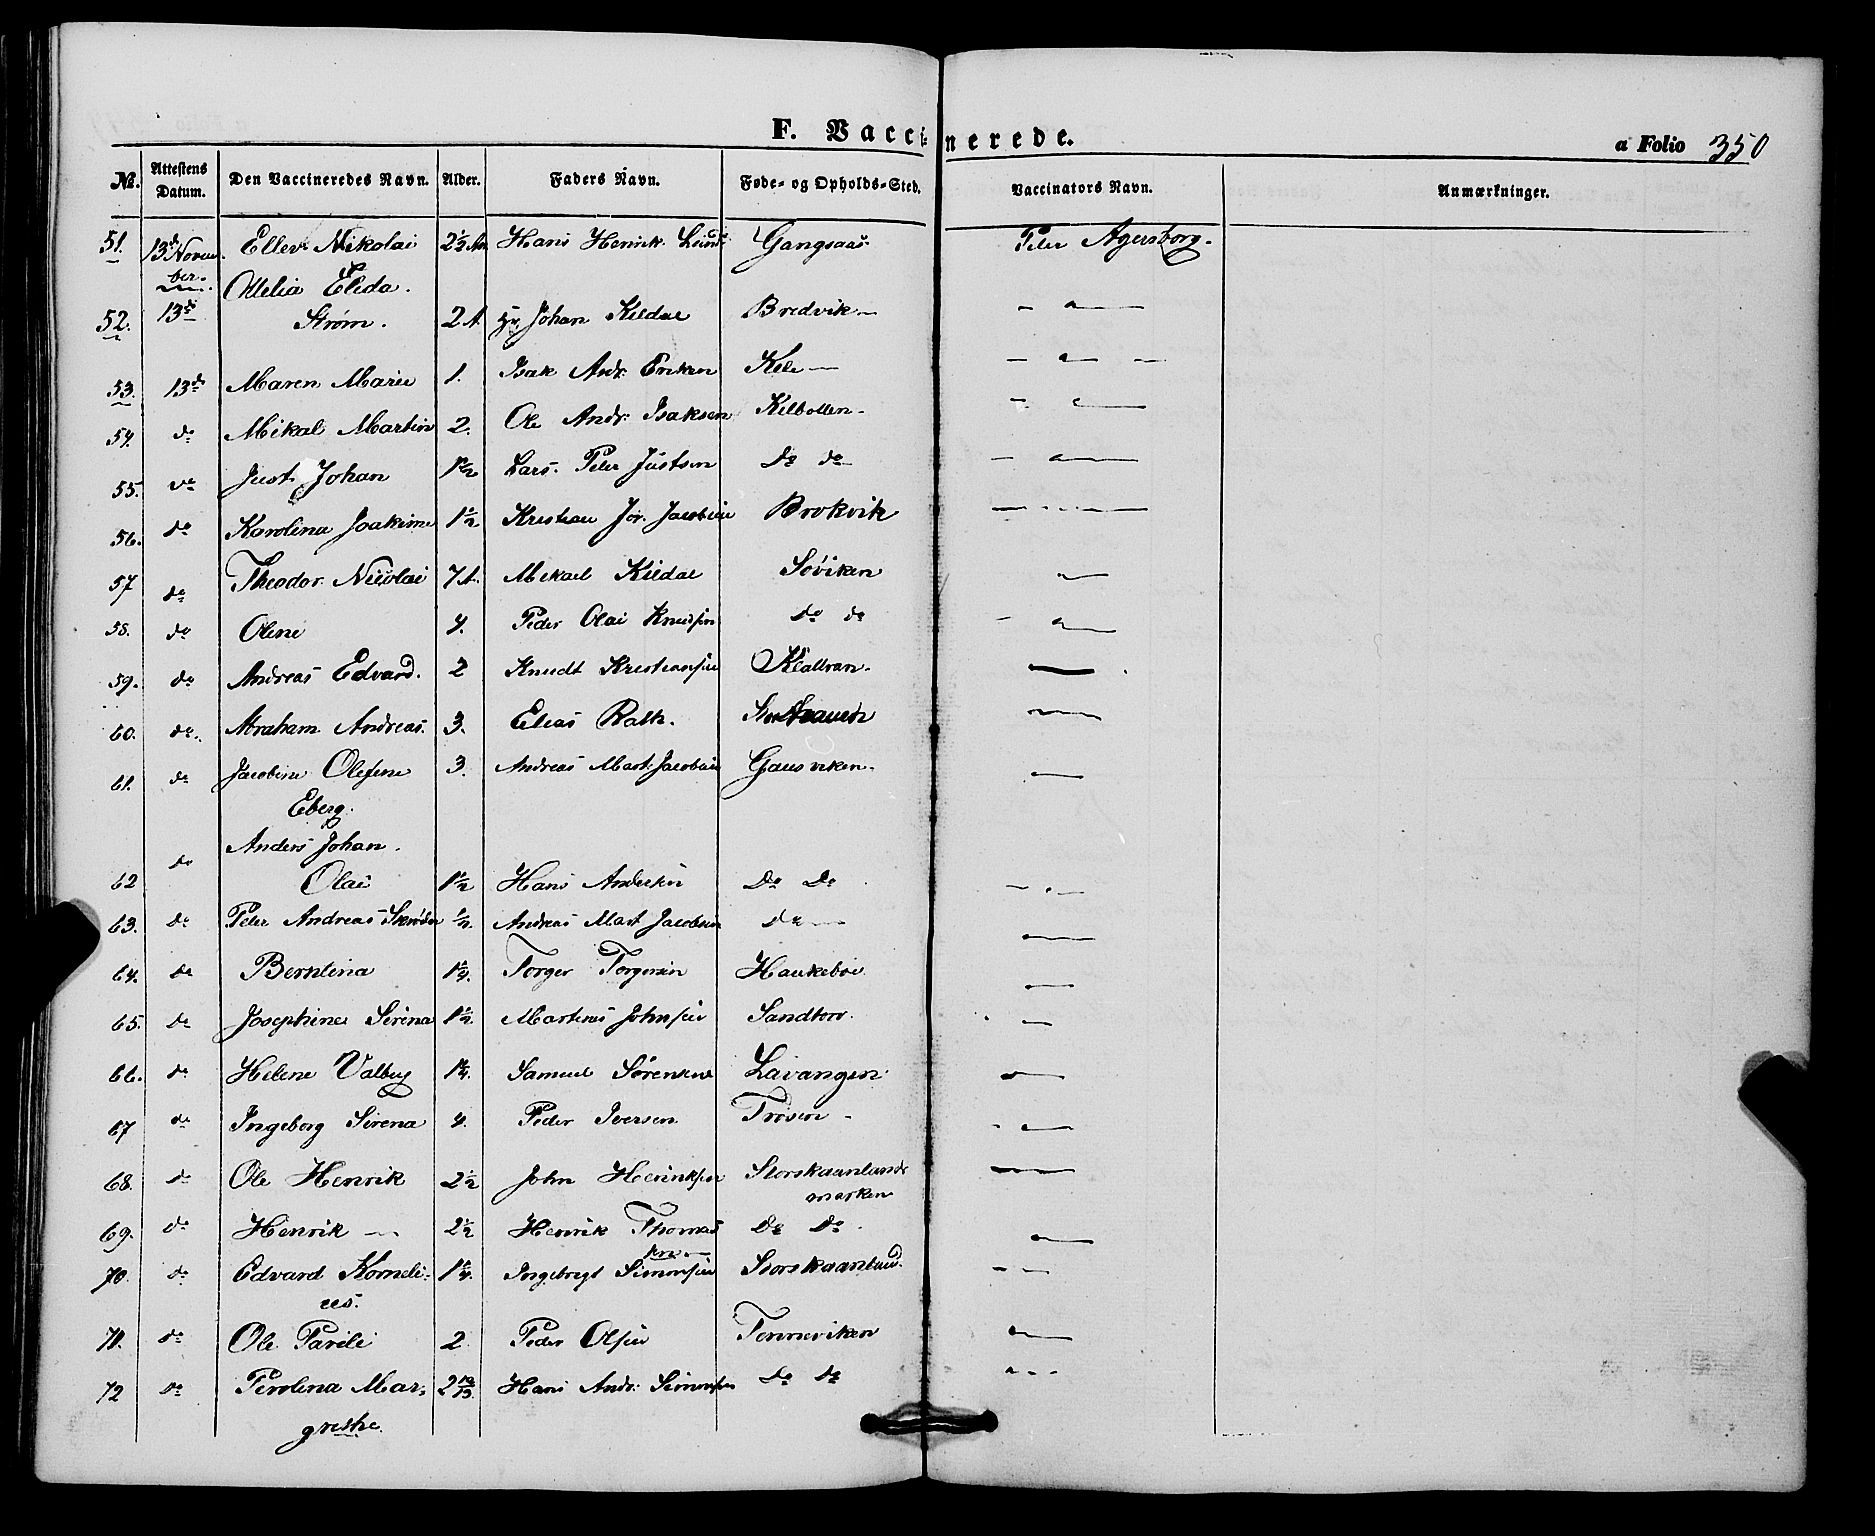 F. Vaccinerede.
a Folio 350
No. Attestens Datum. Den Vaccineredes Navn. Alder. Faders Navn. Føde- og Opholds-Sted. Vaccinators Navn. Anmærkninger.
51. 13de Novem- Ellev Nikolai 2½ Aar Hans Henrik Gangsaas. Peter Agersborg.
ber. Ottelia Elida.
52. 13de Strøm. 2 A. Johan Kildal Bredvik — " —
53. 13de Maren Marie 1. Isak Andr. Eriksen — " —
54. do Mikal Martin 2. Ole Andr: Isaksen Kilbotten. — " —
55. do Just Johan 1½ Lars. Peter Justsen Do do — " —
56. do Karolina Joakime 1½ Kristian Jør. Jacobsen Brokvik — " —
57 do Theodor Nicolai 7 A. Mikael Kildal Søviken "—
58. do Olene 4. Peder Olai Knudsen do do — " —
59. do Andreas Edvard. 2 Knudt Kristiansen Kjøttran. —
60. do. Abraham Andreas. 3. Elias Rath. "—
61. do Jacobine Olefine 3. Andreas Mart. Jacobsen Gausviken. "—
Eberg.
do Anders Johan.
62 Olai 1½ Hans Andersen Do Do — " —
63. do Peter Andreas Schrøder ½ Andreas Mart Jacobsen do — "—
64. do Berntina 1¼. Torger Torgersen Haukebøe "—
65. do Josephine Sirena 1½. Martinus Johnsen Sandtorv. "—
66. do Helene Valborg 1¼. Samuel Sørensen Lavangen "—
67 do Ingeborg Sirena 4. Peder Iversen Trøsen - "—
68. do Ole Henrik 2½ John Henriksen Storskaanlands —
marken
69. do Henrik — 2½ Henrik Thomas Do Do. "—
sen —
70. do Edvard Korneli- 1¼. Ingebregt Simonsen Storskaanland. — " —
us.
71. do Ole Parile 2. Peder Olsen Tenneviken "—
72 do Perolina Mar- 2 Hans Andr. Simonsen do do " - -
grethe.